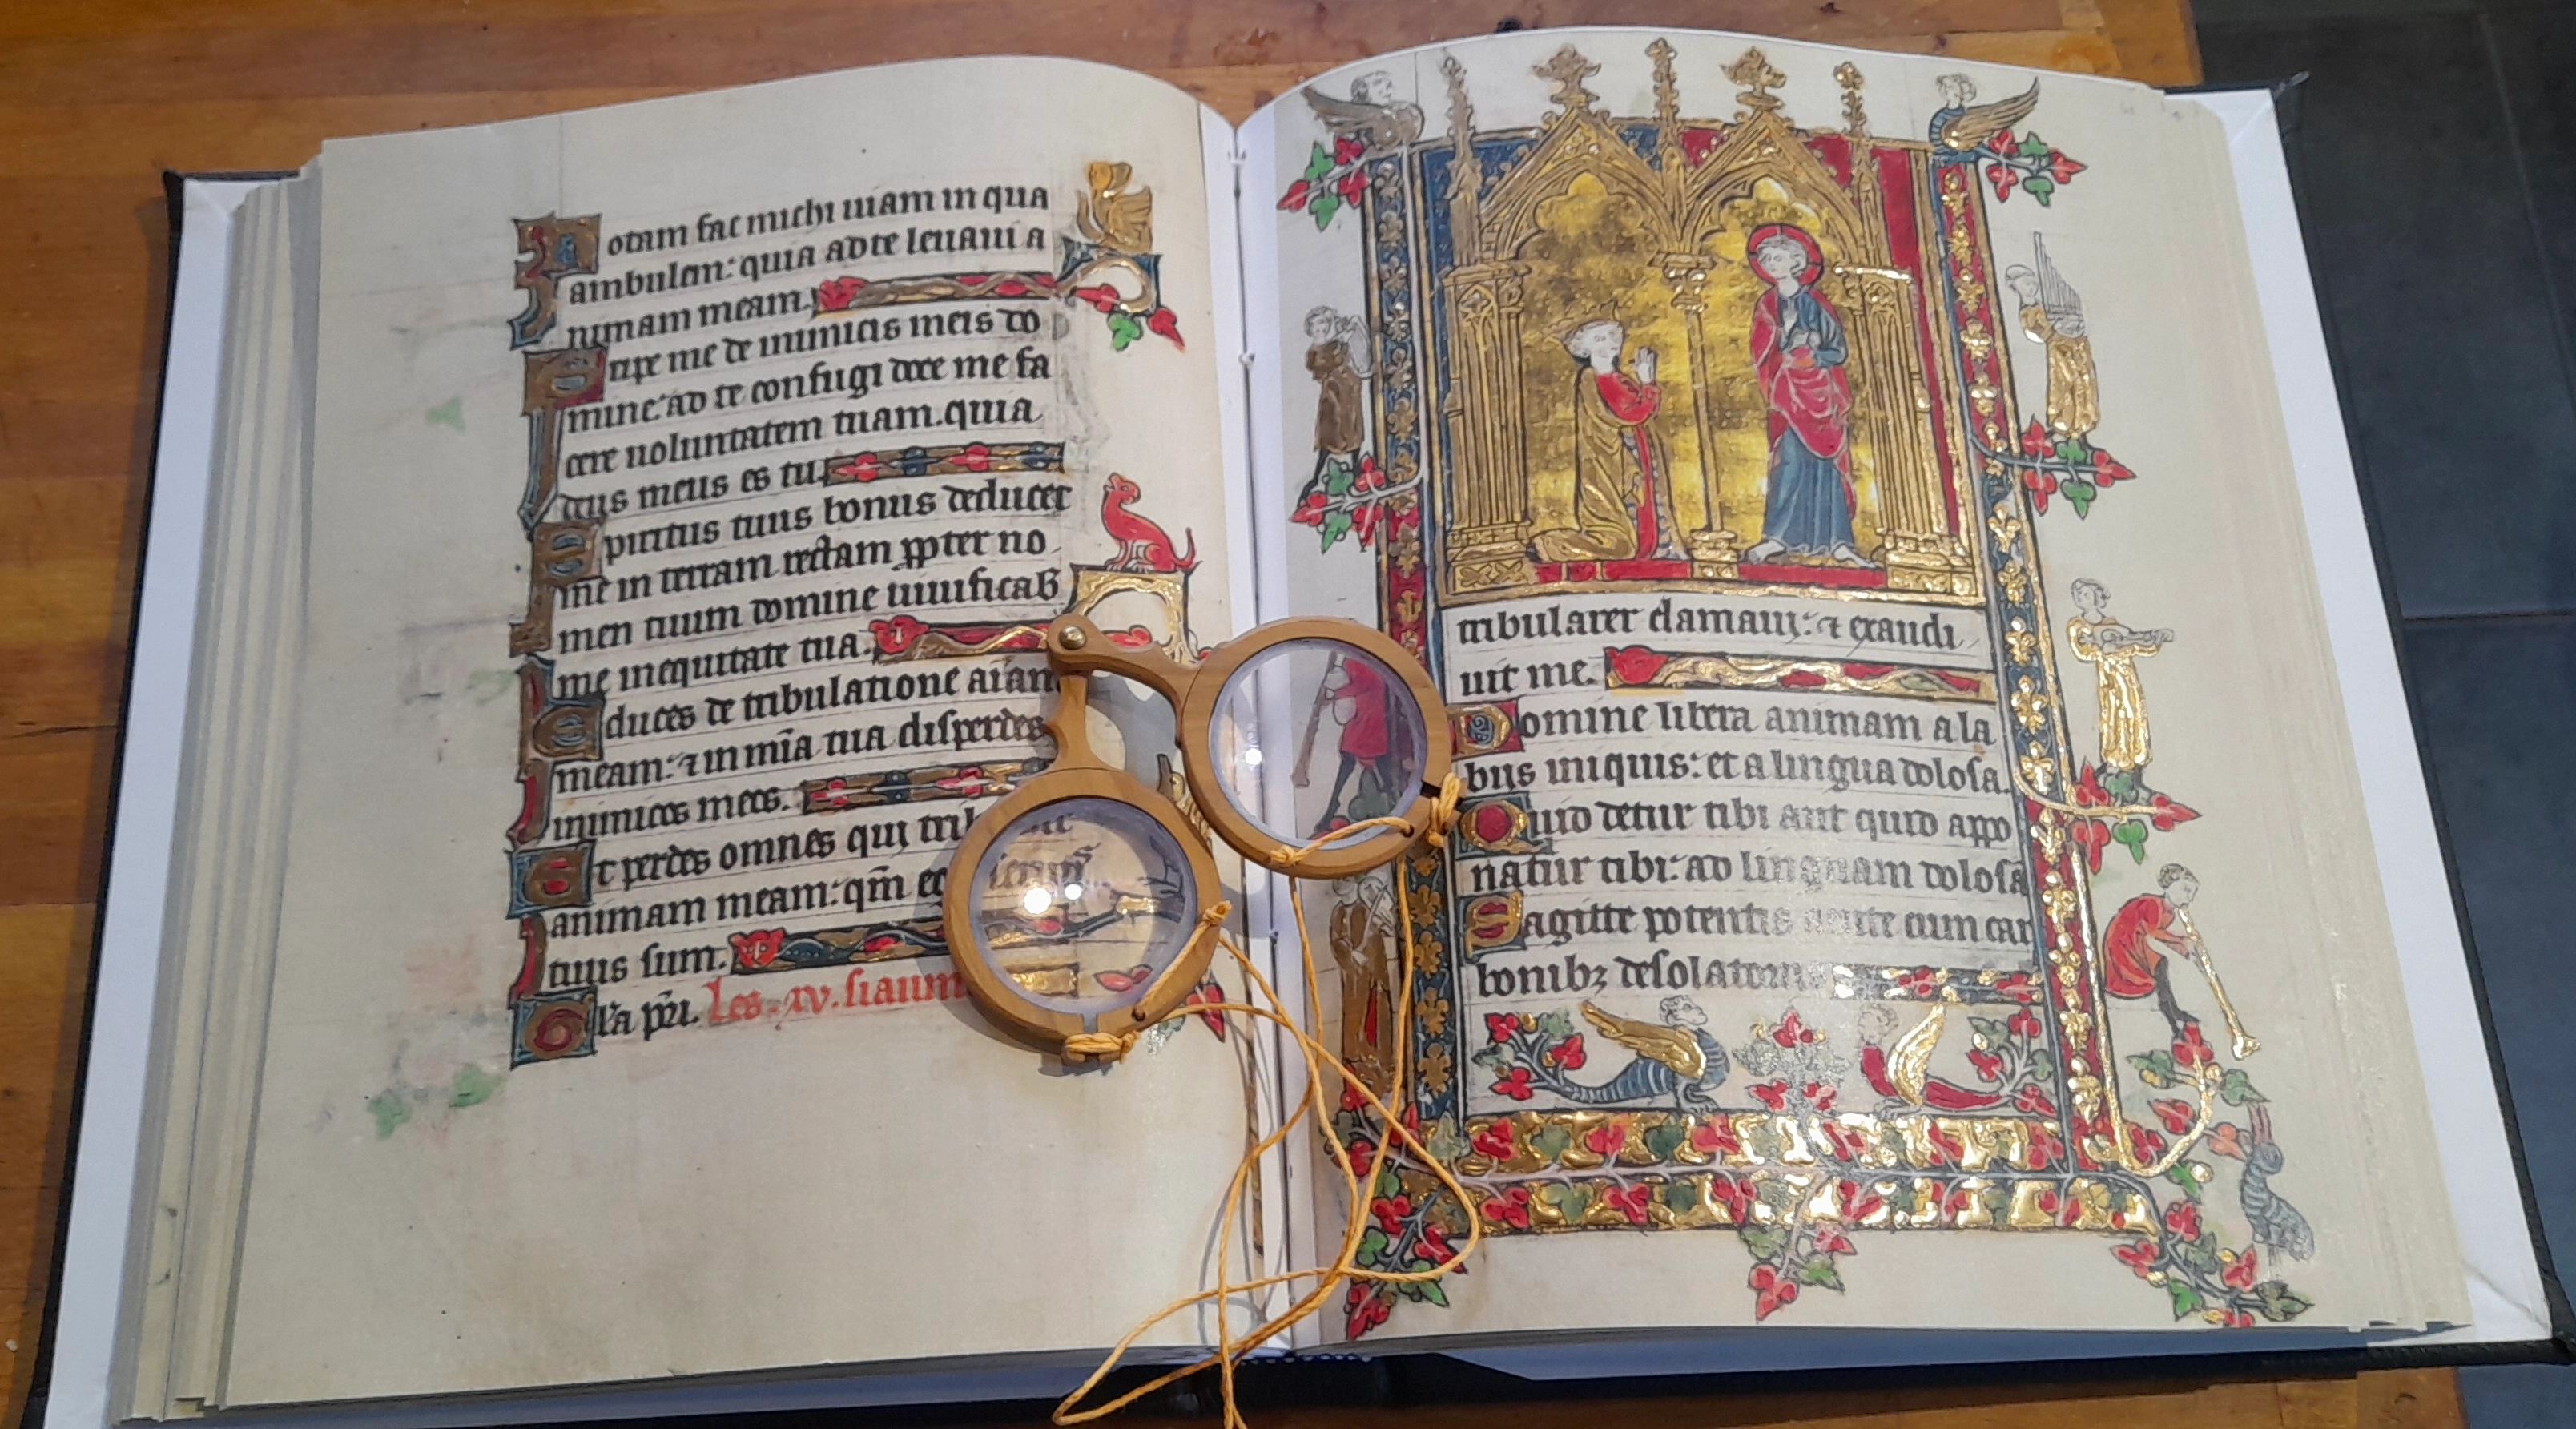 Notam fac michi uiam in qua
ambulem: quia ad te leuaui a
nimam meam.
Eripe me de inimicis meis do
mine: ad te confugi doce me fa
cere uoluntatem tuam. quia
deus meus es tu.
Spiritus tuus bonus deducet
me in terram rectam ꝓpter no
men tuum domine uiuificab
me in equitate tua.
Educes de tribulatione aīam
meam: ⁊ in mīa tua disperdes
inimicos meos.
Et perdes omnes qui
animam meam: qm̄
tuus sum.
Gl'a pr̄i. Les .xv. siaum
tribularer clamaui: ⁊ exaudi
uit me.
Domine libera animam a la
biis iniquis: et a lingua dolosa.
Quid detur tibi aut quid appo
natur tibi: ad linguam dolosā
Sagitte potentis acute cum car
bonibꝫ desolatoriis